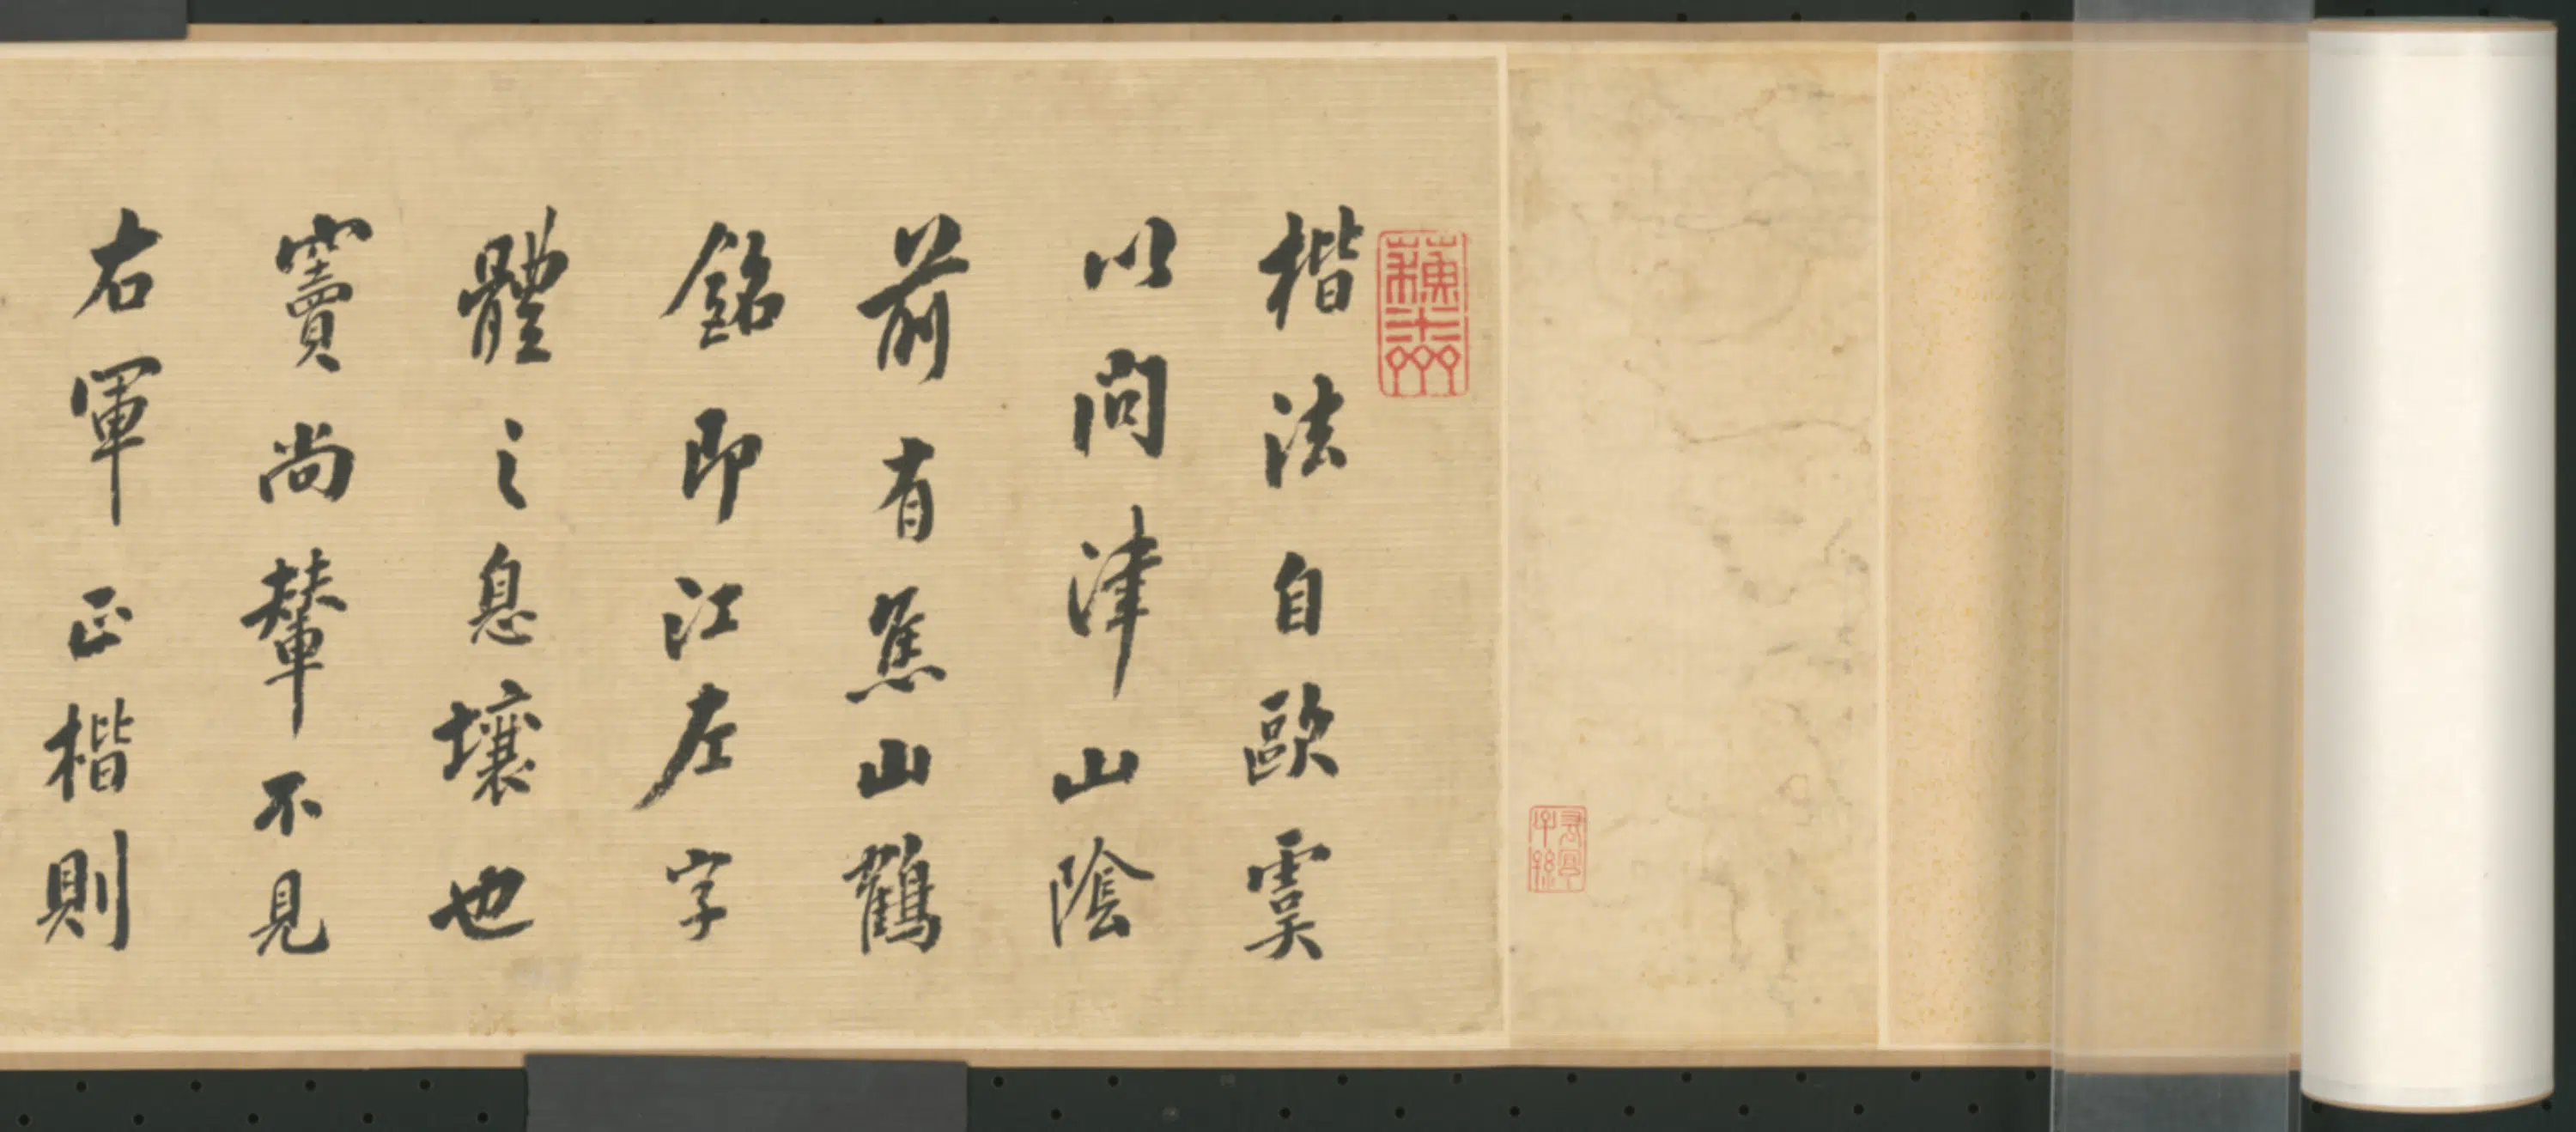 楷法自歐虞
以問津山陰
前有焦山鶴
銘即江左字
體之息壤也
竇尚輦不見
右軍正楷則